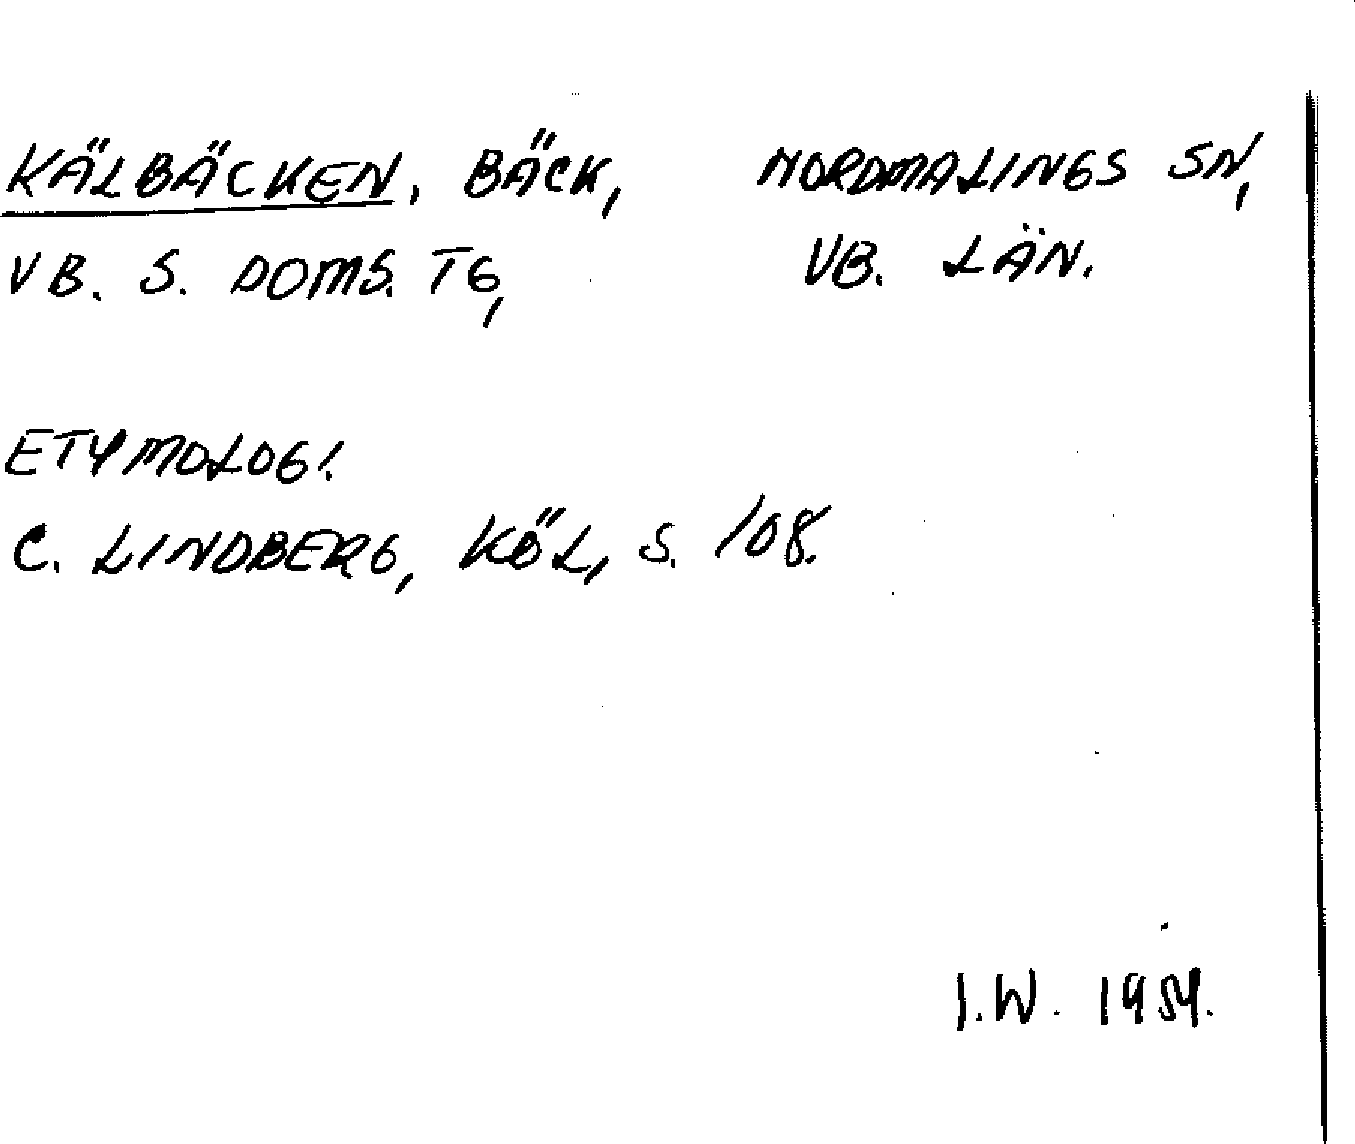 KÄLBÄCKEN, BÄCK, NORDMALINGS SN,
VB. S. DOMS. TG, VB. LÄN.
ETYMOLOGI.
C. LINDBERG, KÖL, S. 108.
I.W. 1954.